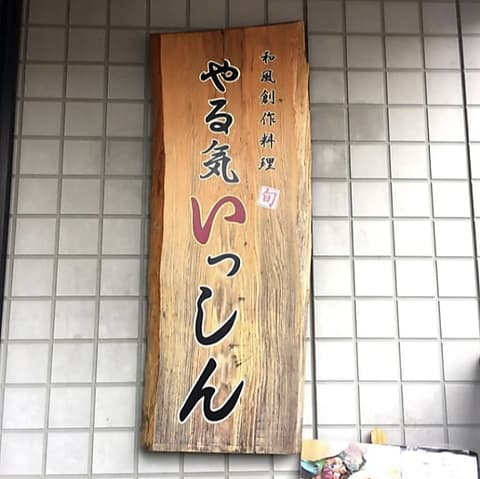 和風創作料理
旬
やる気いっしん